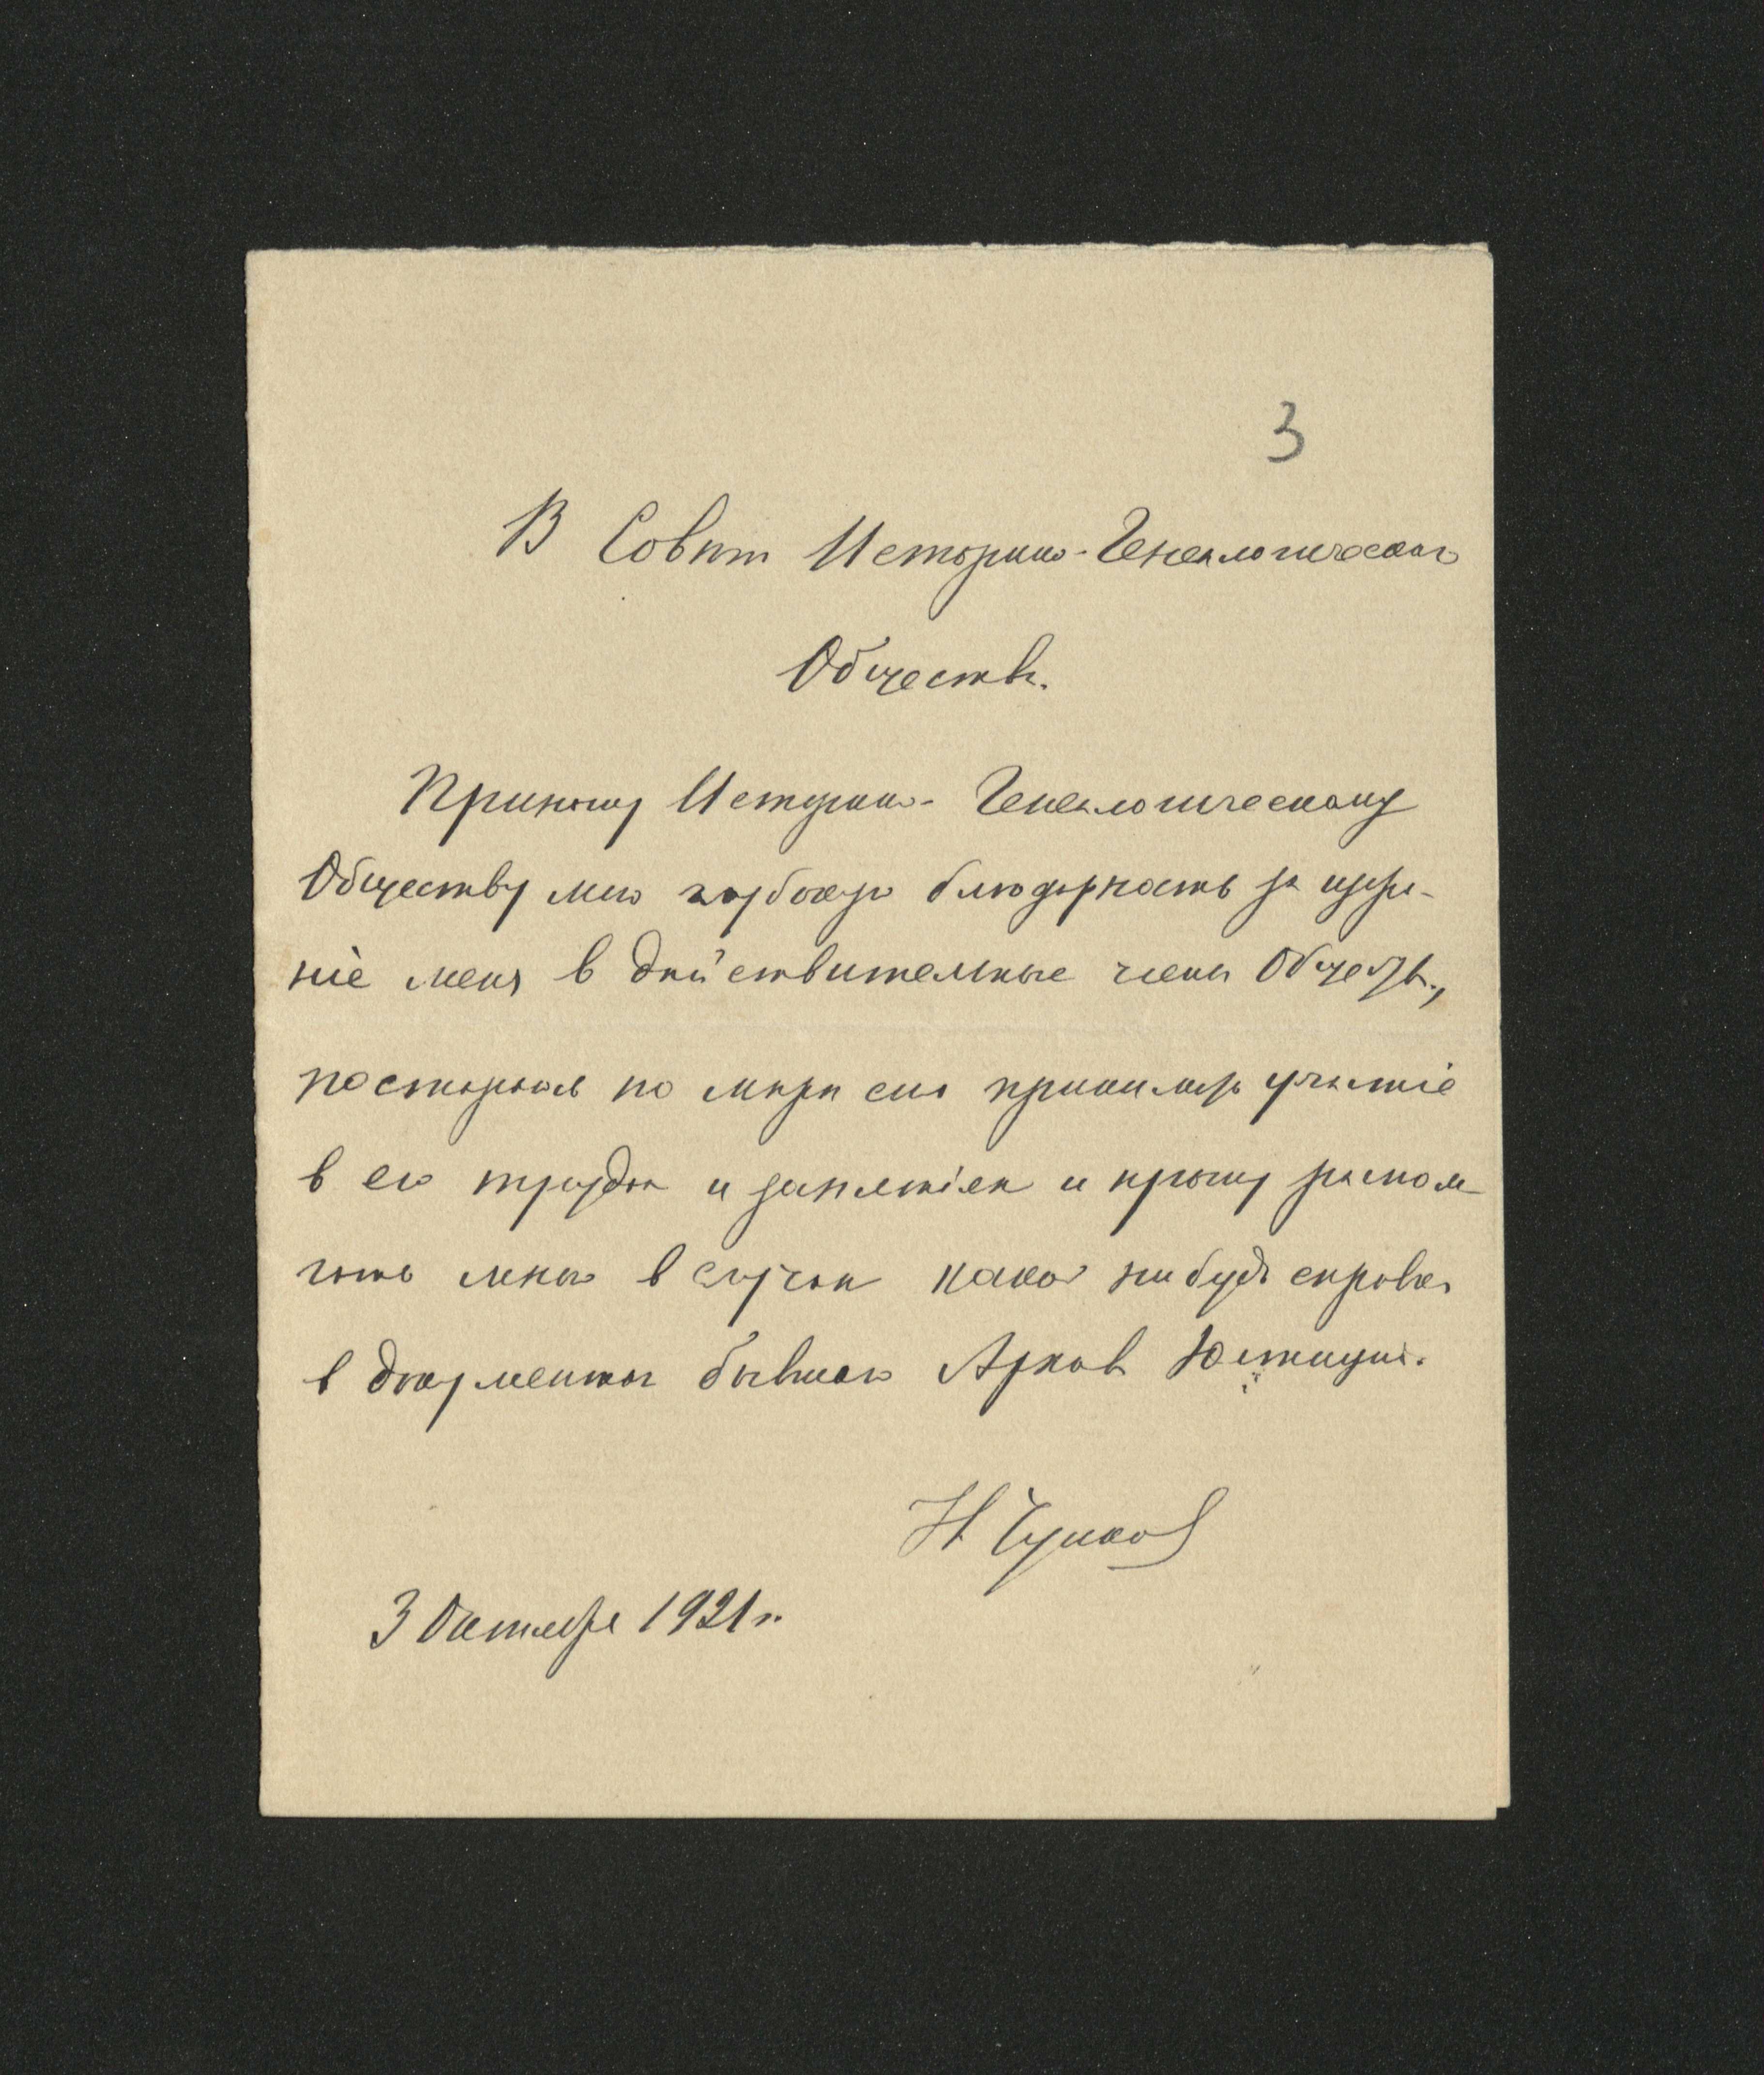 3
В Совѣт Историко-Генеалогическаго
Общества.
Приношу Историко-Генеалогическому
Обществу мою глубокую благодарность за избра-
ніе меня в дѣйствительные члены Общества,
постараюсь по мѣрѣ сил принимать участіе
в его трудах и занятіях и прошу распола-
гать мною в случаѣ каких нибудь справок
в документах бывшаго Архива Юстиціи.
Н Чулков
3 Октября 1921 г.